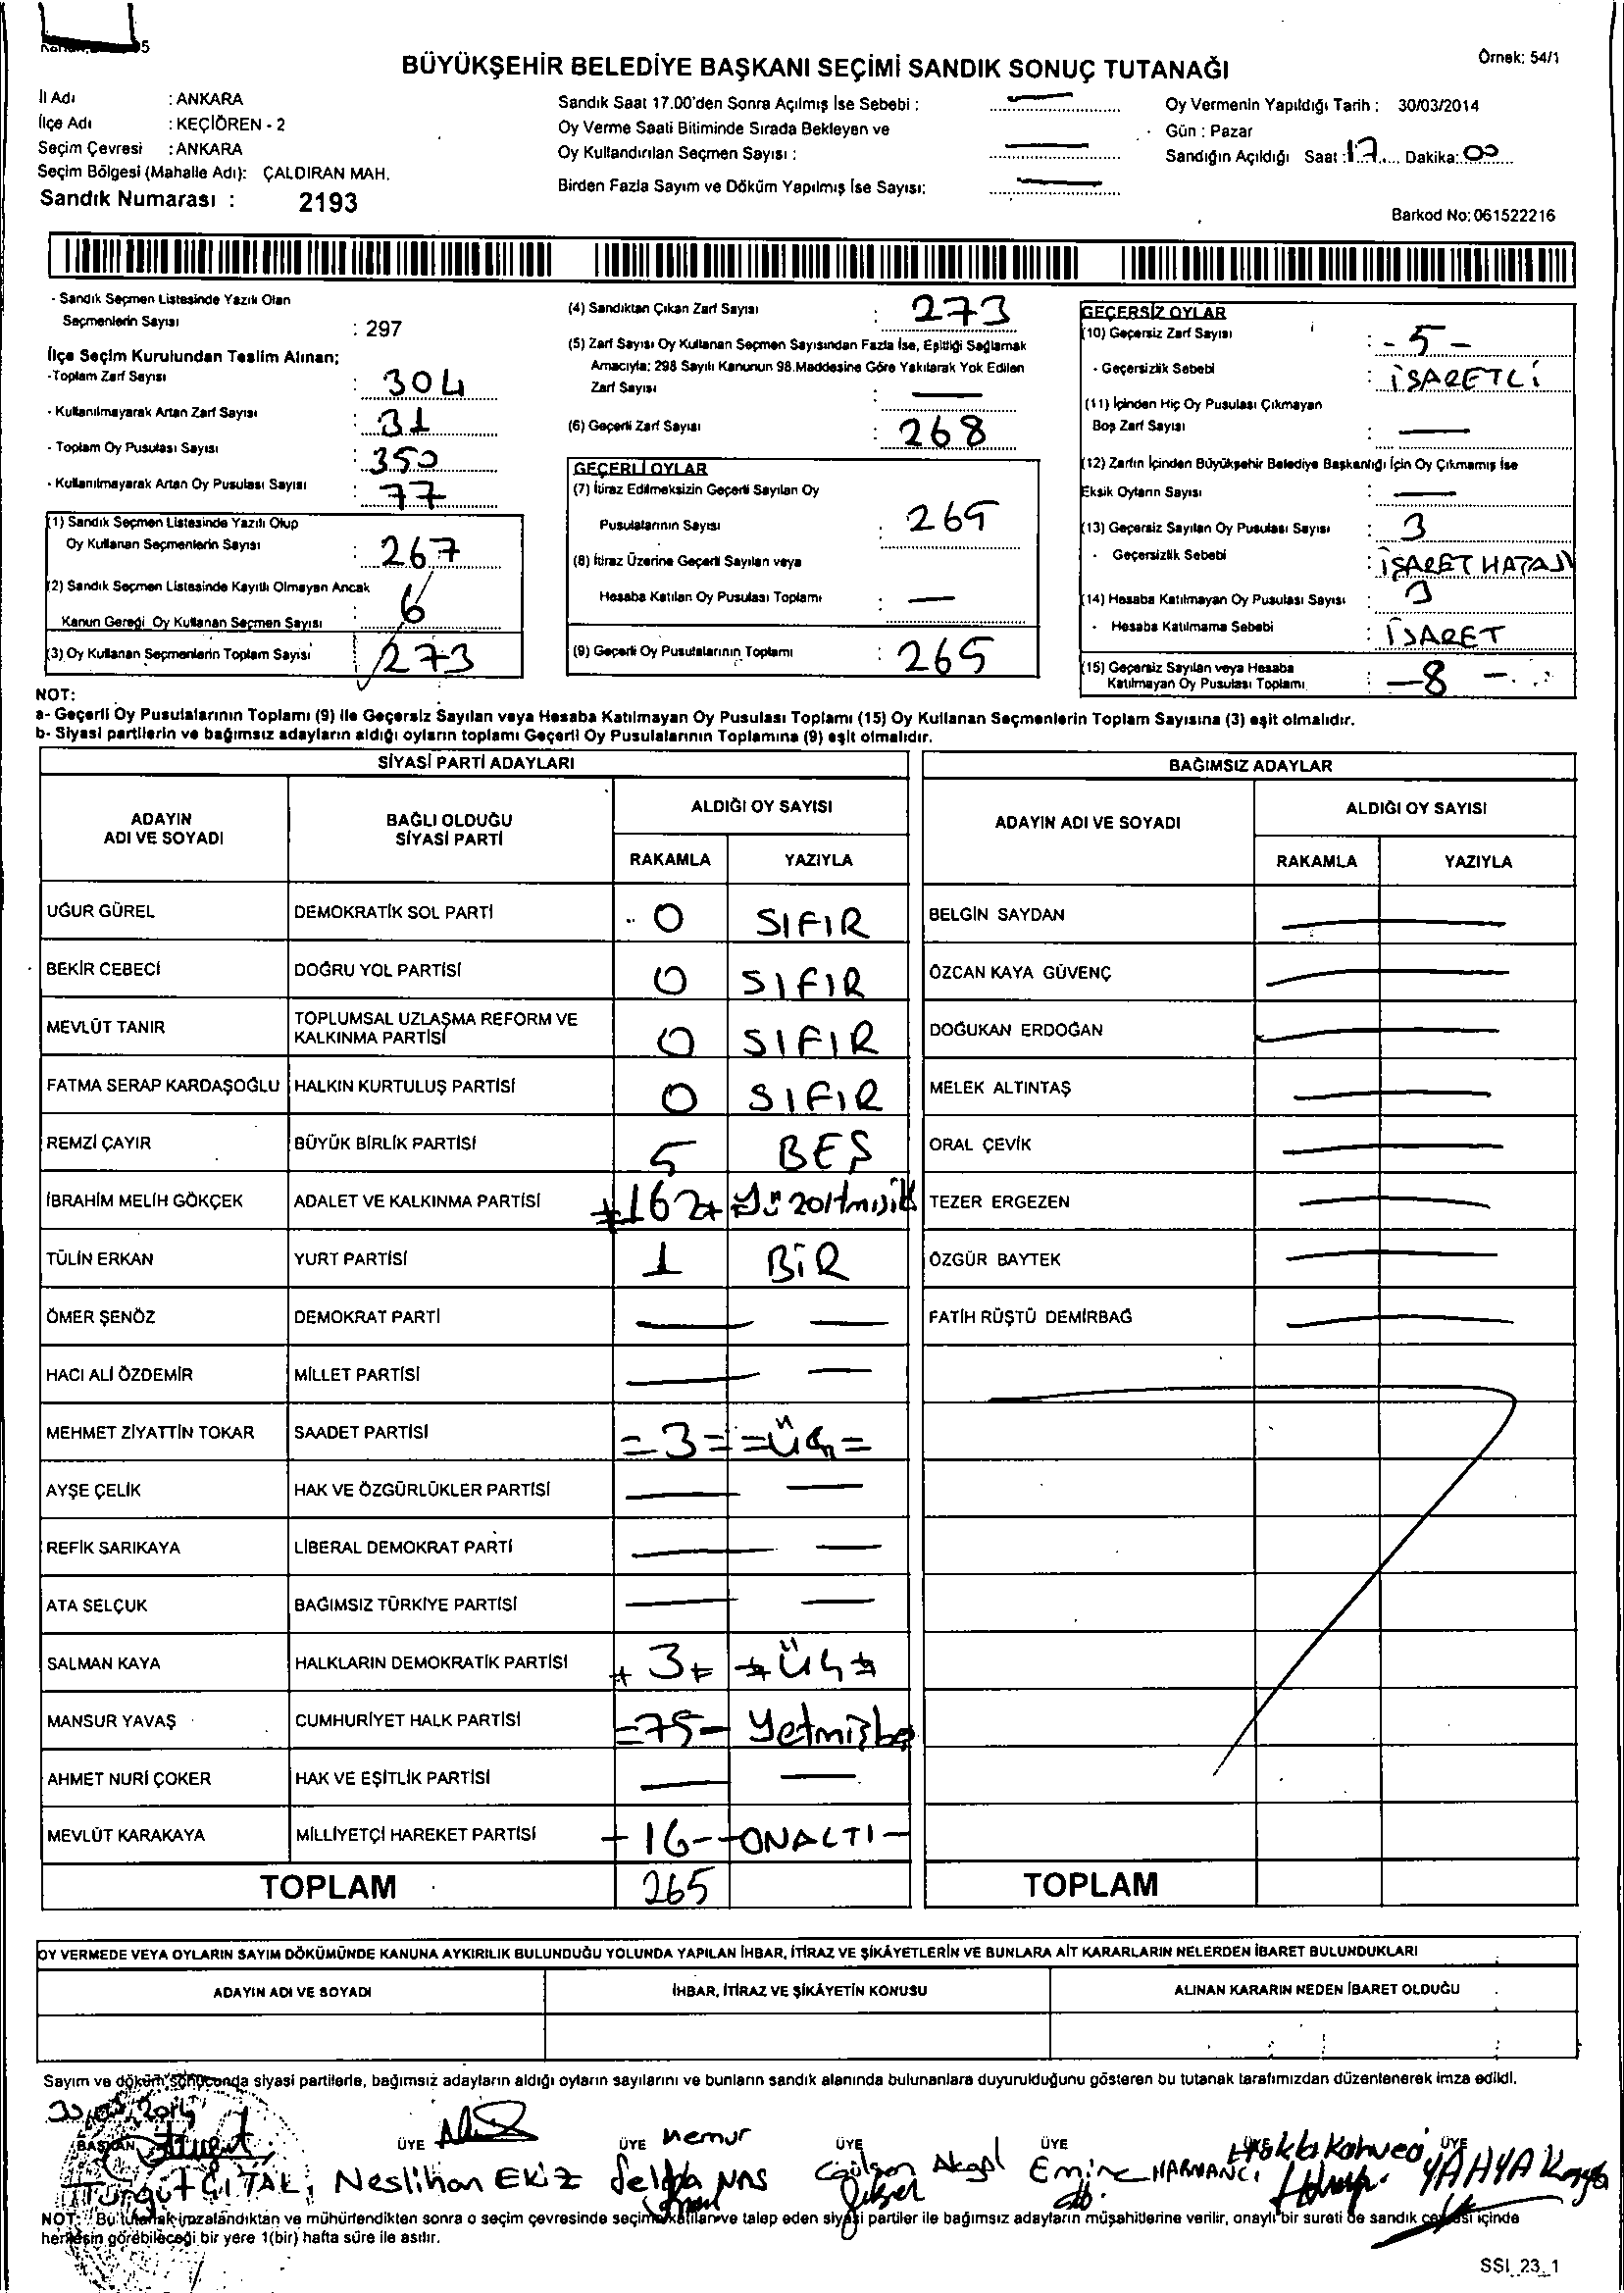 BÜYÜKŞEHİR BELEDİYE BAŞKANI SEÇİMİ SANDIK SONUÇ TUTANAĞI
Örnek: 54/1
İl Adı : ANKARA
İlçe Adı : KEÇİÖREN - 2
Seçim Çevresi : ANKARA
Seçim Bölgesi (Mahalle Adı): ÇALDIRAN MAH.
Sandık Numarası : 2193
Sandık Saat 17.00'den Sonra Açılmış İse Sebebi :
Oy Verme Saati Bitiminde Sırada Bekleyen ve
Oy Kullandırılan Seçmen Sayısı :
Birden Fazla Sayım ve Döküm Yapılmış İse Sayısı:
Oy Vermenin Yapıldığı Tarih : 30/03/2014
Gün : Pazar
Sandığın Açıldığı Saat : 17 Dakika: 00
Barkod No: 061522216
- Sandık Seçmen Listesinde Yazılı Olan
Seçmenlerin Sayısı : 297
İlçe Seçim Kurulundan Teslim Alınan;
-Toplam Zarf Sayısı : 304
- Kullanılmayarak Artan Zarf Sayısı : 31
- Toplam Oy Pusulası Sayısı : 350
- Kullanılmayarak Artan Oy Pusulası Sayısı : 77
(1) Sandık Seçmen Listesinde Yazılı Olup
Oy Kullanan Seçmenlerin Sayısı : 267
(2) Sandık Seçmen Listesinde Kayıtlı Olmayan Ancak
Kanun Gereği Oy Kullanan Seçmen Sayısı : 6
(3) Oy Kullanan Seçmenlerin Toplam Sayısı 273
(4) Sandıktan Çıkan Zarf Sayısı : 273
(5) Zarf Sayısı Oy Kullanan Seçmen Sayısından Fazla İse, Eşitliği Sağlamak
Amacıyla; 298 Sayılı Kanunun 98.Maddesine Göre Yakılarak Yok Edilen
Zarf Sayısı :
(6) Geçerli Zarf Sayısı : 268
GEÇERLİ OYLAR
(7) İtiraz Edilmeksizin Geçerli Sayılan Oy
Pusulalarının Sayısı : 265
(8) İtiraz Üzerine Geçerli Sayılan veya
Hesaba Katılan Oy Pusulası Toplamı :
(9) Geçerli Oy Pusulalarının Toplamı : 265
GEÇERSİZ OYLAR
(10) Geçersiz Zarf Sayısı : - 5 -
- Geçersizlik Sebebi : İŞARETLİ
(11) İçinden Hiç Oy Pusulası Çıkmayan
Boş Zarf Sayısı :
(12) Zarfın İçinden Büyükşehir Belediye Başkanlığı İçin Oy Çıkmamış İse
Eksik Oyların Sayısı :
(13) Geçersiz Sayılan Oy Pusulası Sayısı : 3
- Geçersizlik Sebebi : İŞARET HATASI
(14) Hesaba Katılmayan Oy Pusulası Sayısı : 3
- Hesaba Katılmama Sebebi : İŞARET
(15) Geçersiz Sayılan veya Hesaba
Katılmayan Oy Pusulası Toplamı : - 8 -
NOT:
a- Geçerli Oy Pusulalarının Toplamı (9) ile Geçersiz Sayılan veya Hesaba Katılmayan Oy Pusulası Toplamı (15) Oy Kullanan Seçmenlerin Toplam Sayısına (3) eşit olmalıdır.
b- Siyasi partilerin ve bağımsız adayların aldığı oyların toplamı Geçerli Oy Pusulalarının Toplamına (9) eşit olmalıdır.
SİYASİ PARTİ ADAYLARI
ADAYIN ADI VE SOYADI BAĞLI OLDUĞU SİYASİ PARTİ ALDIĞI OY SAYISI
RAKAMLA YAZIYLA
UĞUR GÜREL DEMOKRATİK SOL PARTİ 0 SIFIR
BEKİR CEBECİ DOĞRU YOL PARTİSİ 0 SIFIR
MEVLÜT TANIR TOPLUMSAL UZLAŞMA REFORM VE KALKINMA PARTİSİ 0 SIFIR
FATMA SERAP KARDAŞOĞLU HALKIN KURTULUŞ PARTİSİ 0 SIFIR
REMZİ ÇAYIR BÜYÜK BİRLİK PARTİSİ 5 BEŞ
İBRAHİM MELİH GÖKÇEK ADALET VE KALKINMA PARTİSİ 162
TÜLİN ERKAN YURT PARTİSİ 1 BİR
ÖMER ŞENÖZ DEMOKRAT PARTİ
HACI ALİ ÖZDEMİR MİLLET PARTİSİ
MEHMET ZİYATTİN TOKAR SAADET PARTİSİ = 3 = = Üç =
AYŞE ÇELİK HAK VE ÖZGÜRLÜKLER PARTİSİ
REFİK SARIKAYA LİBERAL DEMOKRAT PARTİ
ATA SELÇUK BAĞIMSIZ TÜRKİYE PARTİSİ
SALMAN KAYA HALKLARIN DEMOKRATİK PARTİSİ 3 Üç
MANSUR YAVAŞ CUMHURİYET HALK PARTİSİ =75- Yetmişbeş
AHMET NURİ ÇOKER HAK VE EŞİTLİK PARTİSİ
MEVLÜT KARAKAYA MİLLİYETÇİ HAREKET PARTİSİ - 16 - - ONALTI -
TOPLAM 265
BAĞIMSIZ ADAYLAR
ADAYIN ADI VE SOYADI ALDIĞI OY SAYISI
RAKAMLA YAZIYLA
BELGİN SAYDAN
ÖZCAN KAYA GÜVENÇ
DOĞUKAN ERDOĞAN
MELEK ALTINTAŞ
ORAL ÇEVİK
TEZER ERGEZEN
ÖZGÜR BAYTEK
FATİH RÜŞTÜ DEMİRBAĞ
TOPLAM
OY VERMEDE VEYA OYLARIN SAYIM DÖKÜMÜNDE KANUNA AYKIRILIK BULUNDUĞU YOLUNDA YAPILAN İHBAR, İTİRAZ VE ŞİKÂYETLERİN VE BUNLARA AİT KARARLARIN NELERDEN İBARET BULUNDUKLARI
ADAYIN ADI VE SOYADI İHBAR, İTİRAZ VE ŞİKÂYETİN KONUSU ALINAN KARARIN NEDEN İBARET OLDUĞU
Sayım ve döküm sonucunda siyasi partilerle, bağımsız adayların aldığı oyların sayılarını ve bunların sandık alanında bulunanlara duyurulduğunu gösteren bu tutanak tarafımızdan düzenlenerek imza edildi.
BAŞKAN ÜYE ÜYE Memur ÜYE ÜYE ÜYE ÜYE
Turgut Neslihan EKİZ Selda NAS Gülşen Akgöl Emine HARMANCI Hakkı Kahveci YAHYA Kaya
NOT: Bu tutanak imzalandıktan ve mühürlendikten sonra o seçim çevresinde seçime katılan ve talep eden siyasi partiler ile bağımsız adayların müşahitlerine verilir, onaylı bir sureti de sandık çevresi içinde
herkesin görebileceği bir yere 1(bir) hafta süre ile asılır.
SSI_23_1